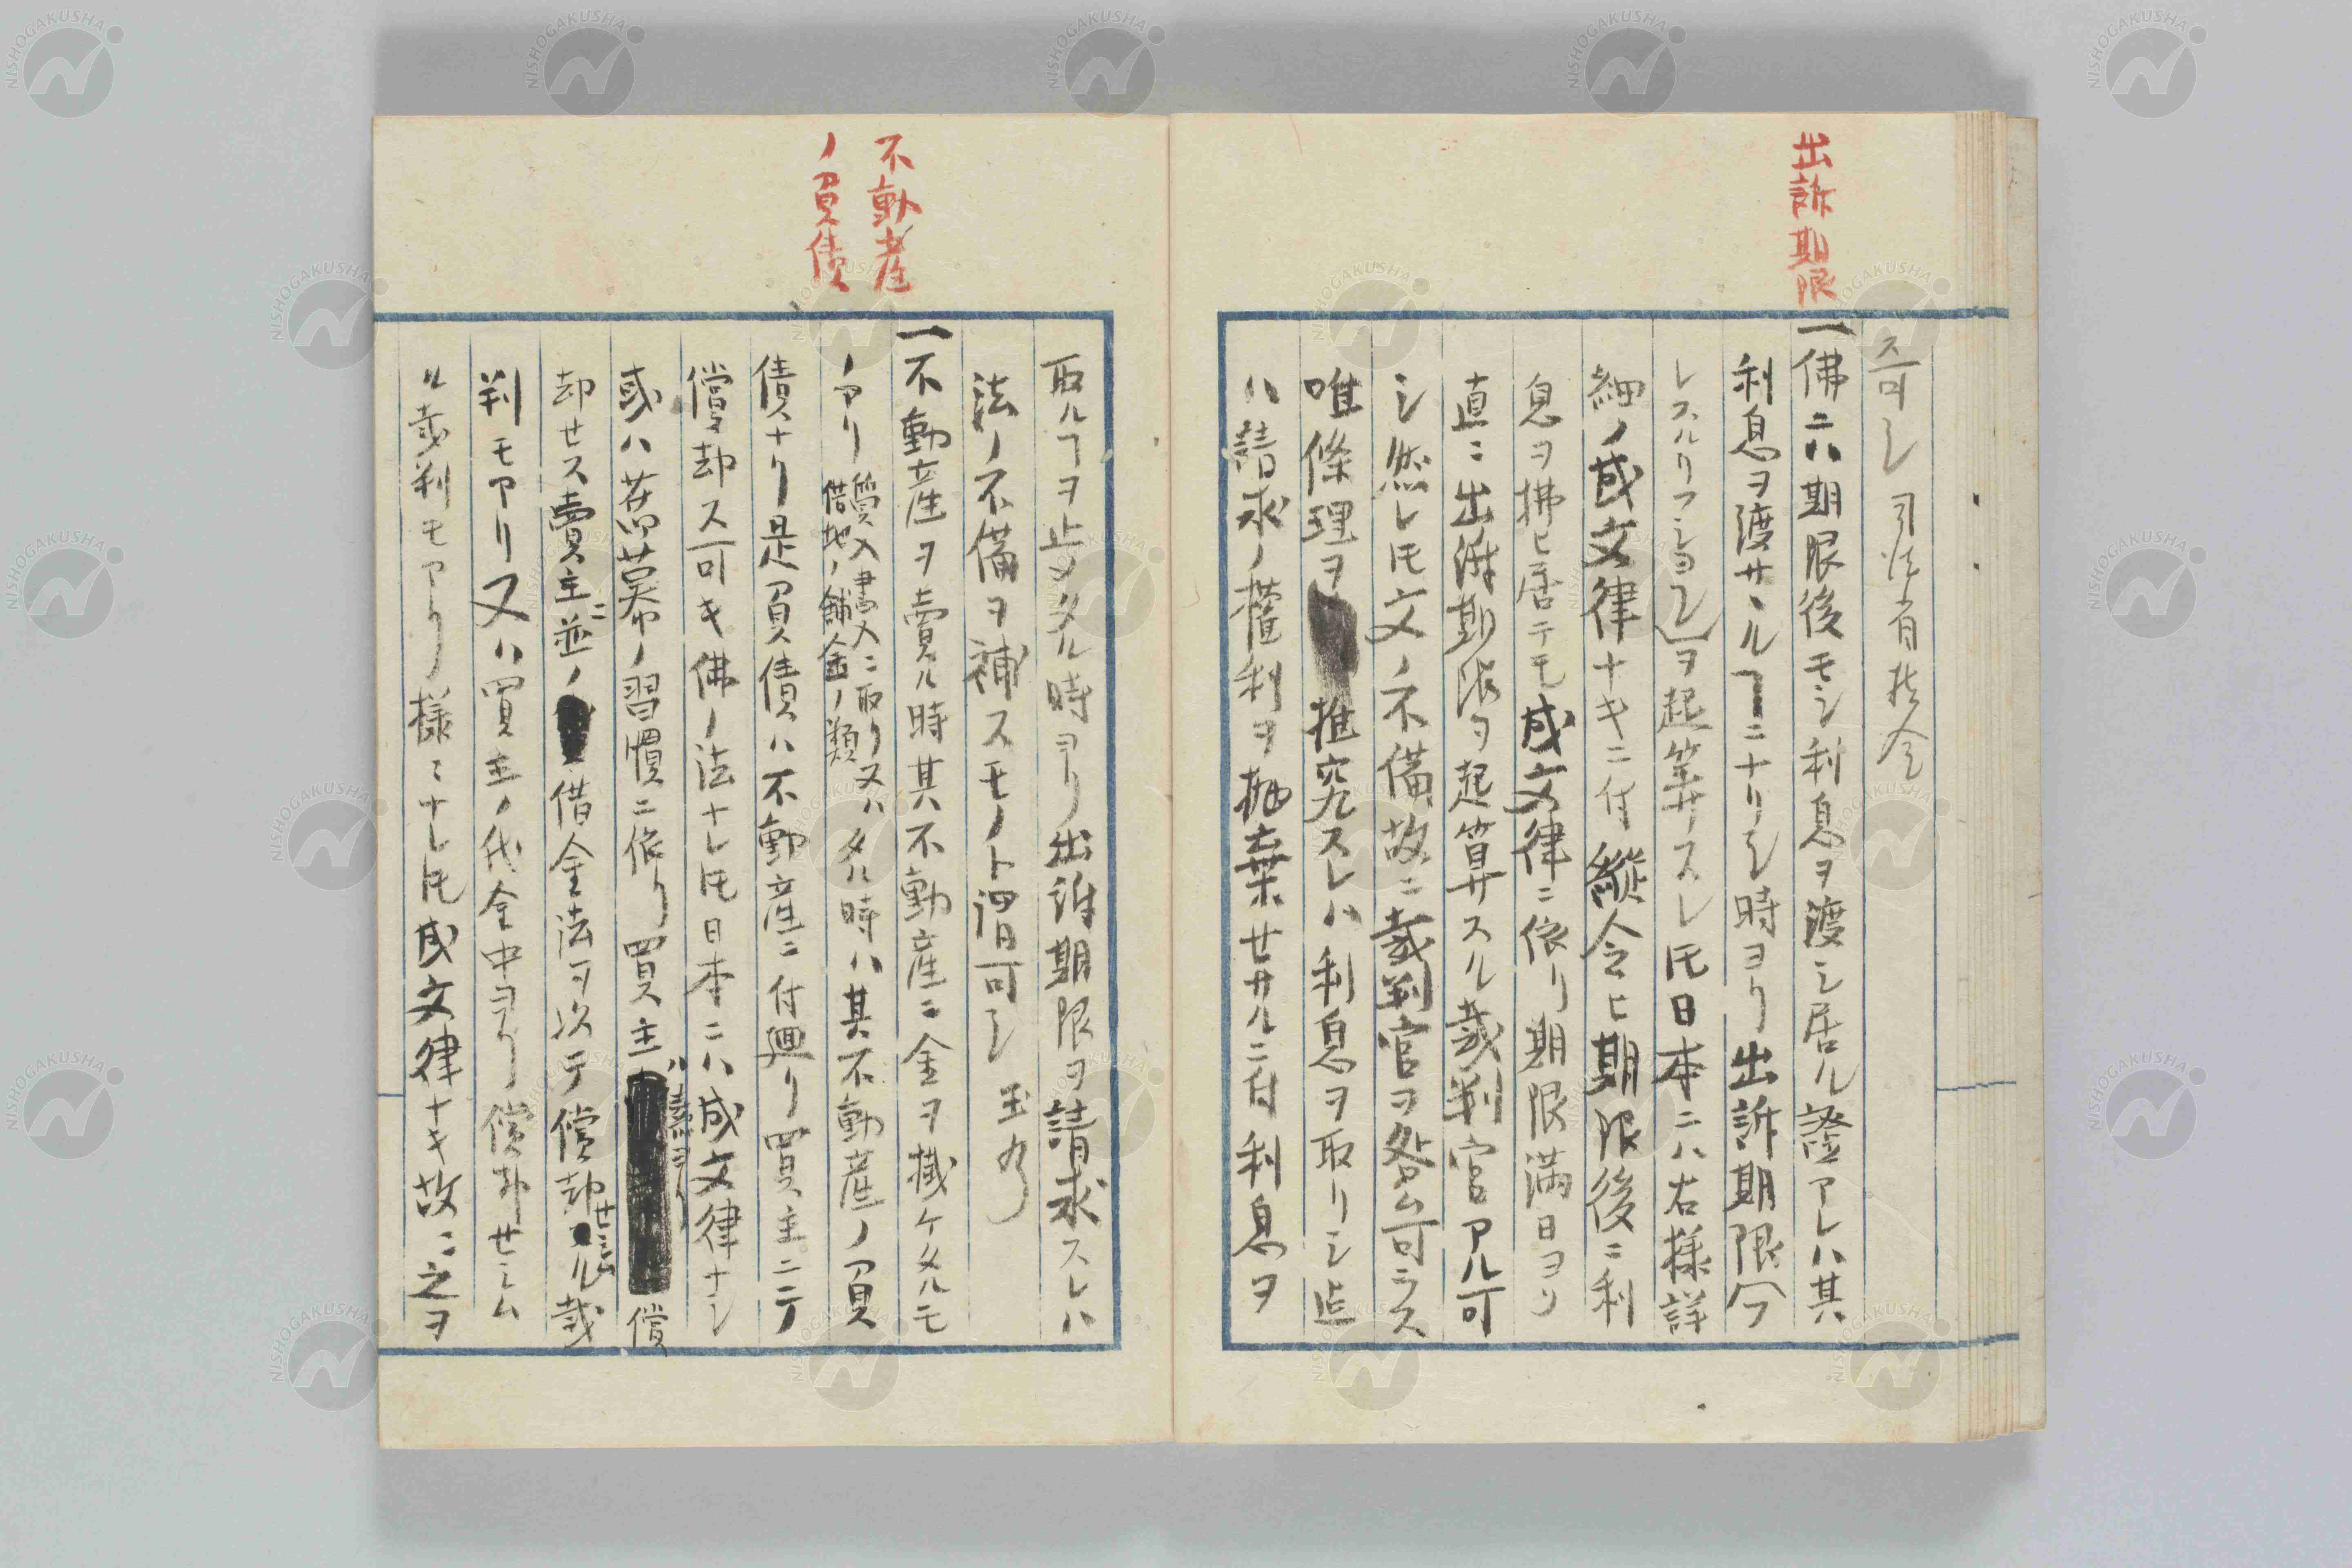 出訴期限
ス可シ司法省指令
一佛ニハ期限後モシ利息ヲ渡シ居ル證アレハ其
利息ヲ渡サヽルヿニナリシ時ヨリ出訴期限
ヲ起算スレ𪜈日本ニハ右様詳
細ノ成文律ナキニ付縦令ヒ期限後ニ利
息ヲ拂ヒ居テモ成文律ニ依リ期限満日ヨリ
直ニ出訴期限ヲ起算スル裁判官アル可
シ然レ𪜈文ノ不備故ニ裁判官ヲ咎ム可ラス
唯條理ヲ推究スレハ利息ヲ取リシ迄
ハ請求ノ權利ヲ抛棄セサルニ付利息ヲ
取ルヿヲ止メタル時ヨリ出訴期限ヲ請求スレハ
法ノ不備ヲ補スモノト謂可シ玉乃
不動産
ノ負債
一不動産ヲ賣ル時其不動産ニ金ヲ掛ケタルモ
ノアリ質入書入ニ取り又ハ借地ノ舗金ノ類タル時ハ其不動産ノ負
債ナリ是負債ハ不動産ニ付廻リ買主ニテ
償却ス可キ佛ノ法ナレ𪜈日本ニハ成文律ナシ
或ハ舊幕ノ習慣ニ依リ買主ハ償
却セス賣主並ニノ借金法ヲ以テ償却セシムル裁
判モアリ又ハ買主ノ代金中ヨリ償却セシム
ル裁判モアリ様ニナレ𪜈成文律ナキ故ニ之ヲ
NISHOGAKUSHA